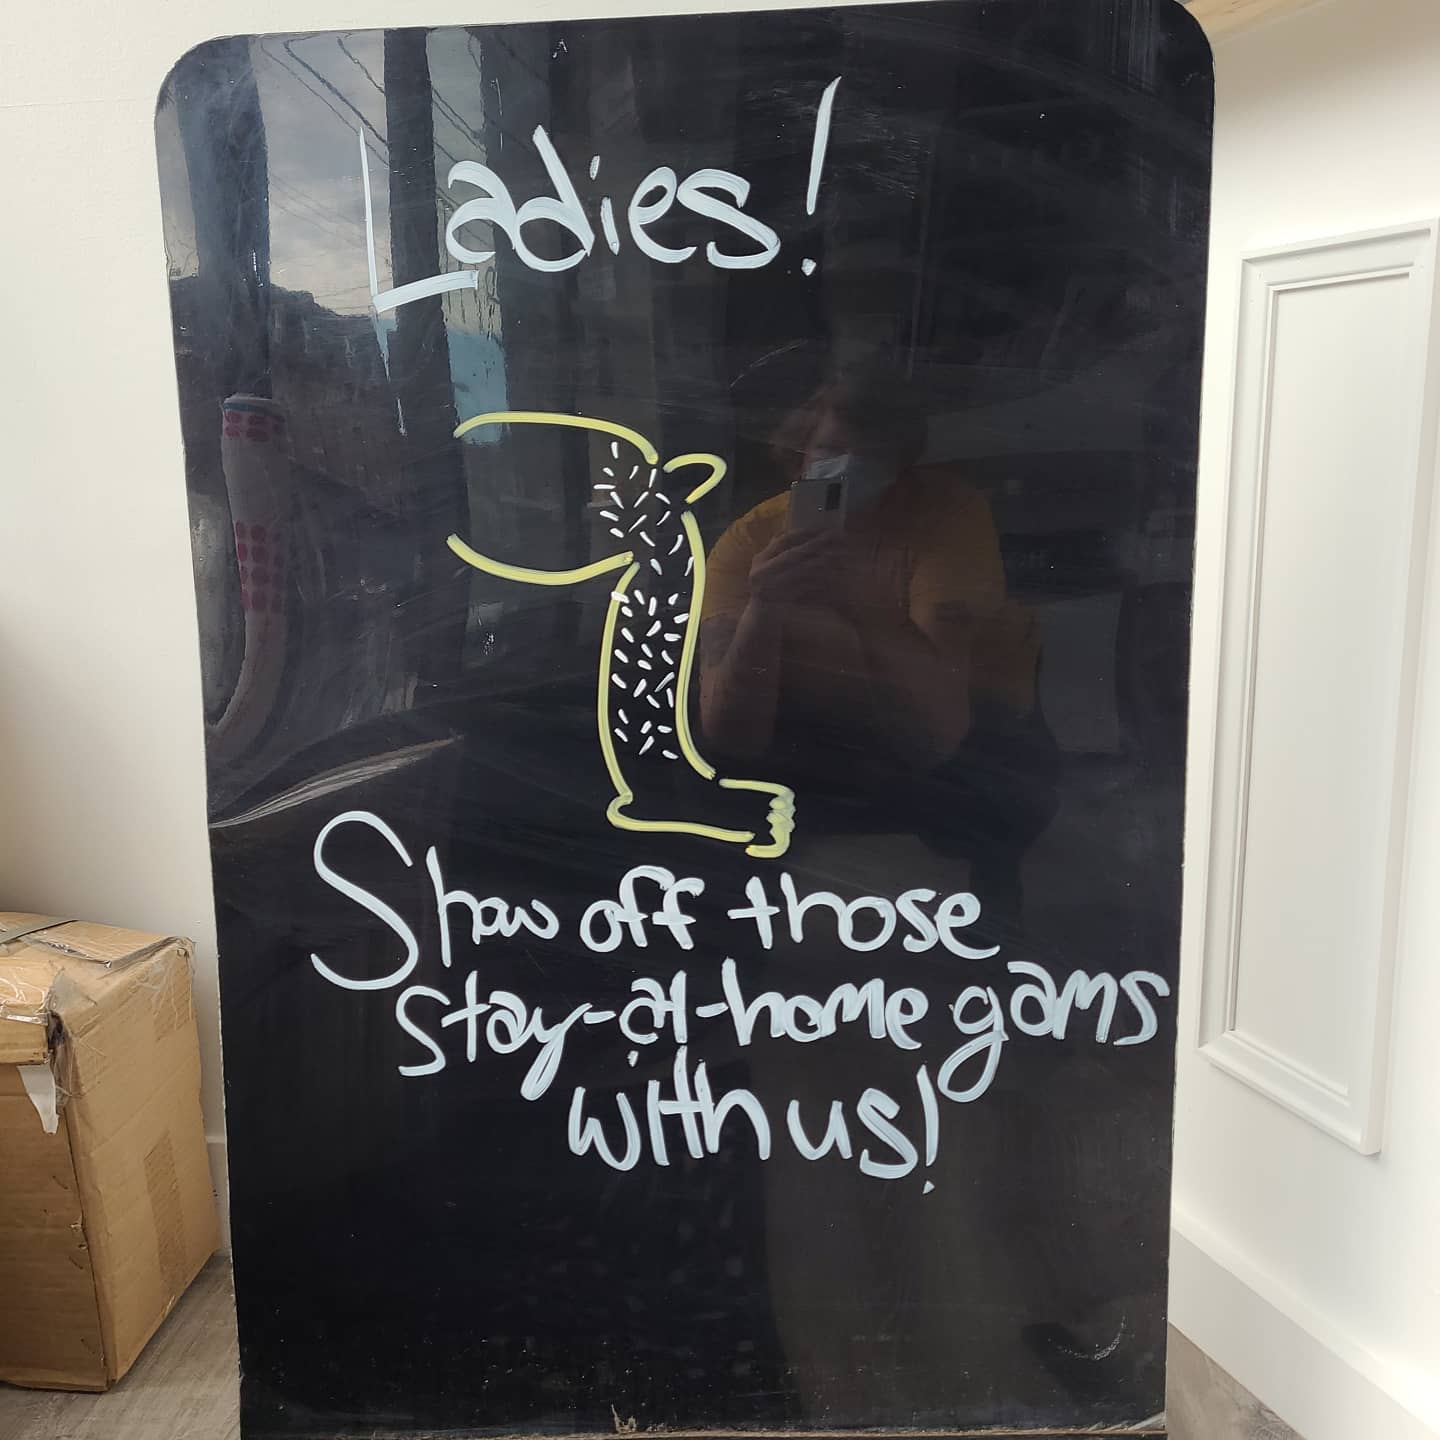 Ladies!
Show off those
stay-at-home gams
with us!